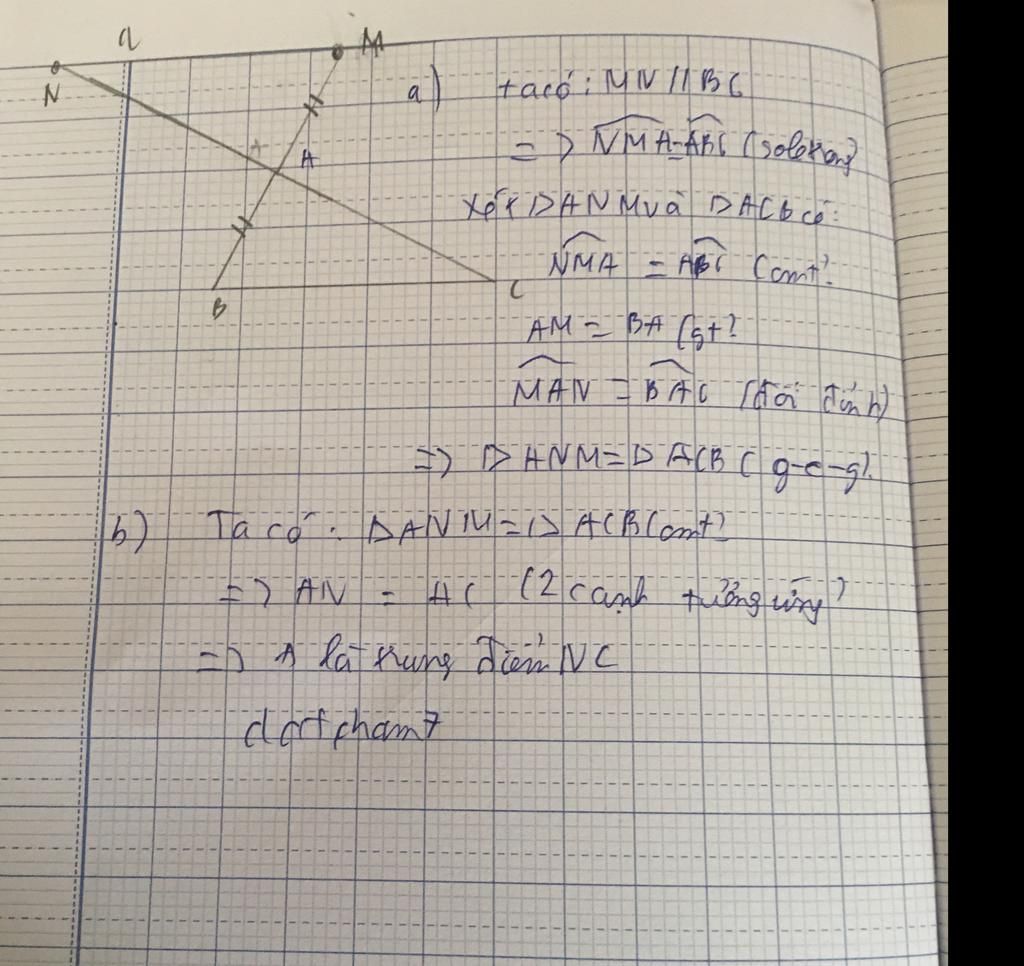 a
N
M
A
A
B
C
a) ta có: MN // BC
=> NMA = ABC (sole trong)
Xét ▷ ANM và ▷ ACB có:
NMA = ABC (cmt)
AM = BA (gt)
MAN = BAC (đối đỉnh)
=> ▷ ANM = ▷ ACB (g-c-g).
b) Ta có: ▷ ANM = ▷ ACB (cmt)
=> AN = AC (2 cạnh tưởng ứng)
=> A là trung điểm NC